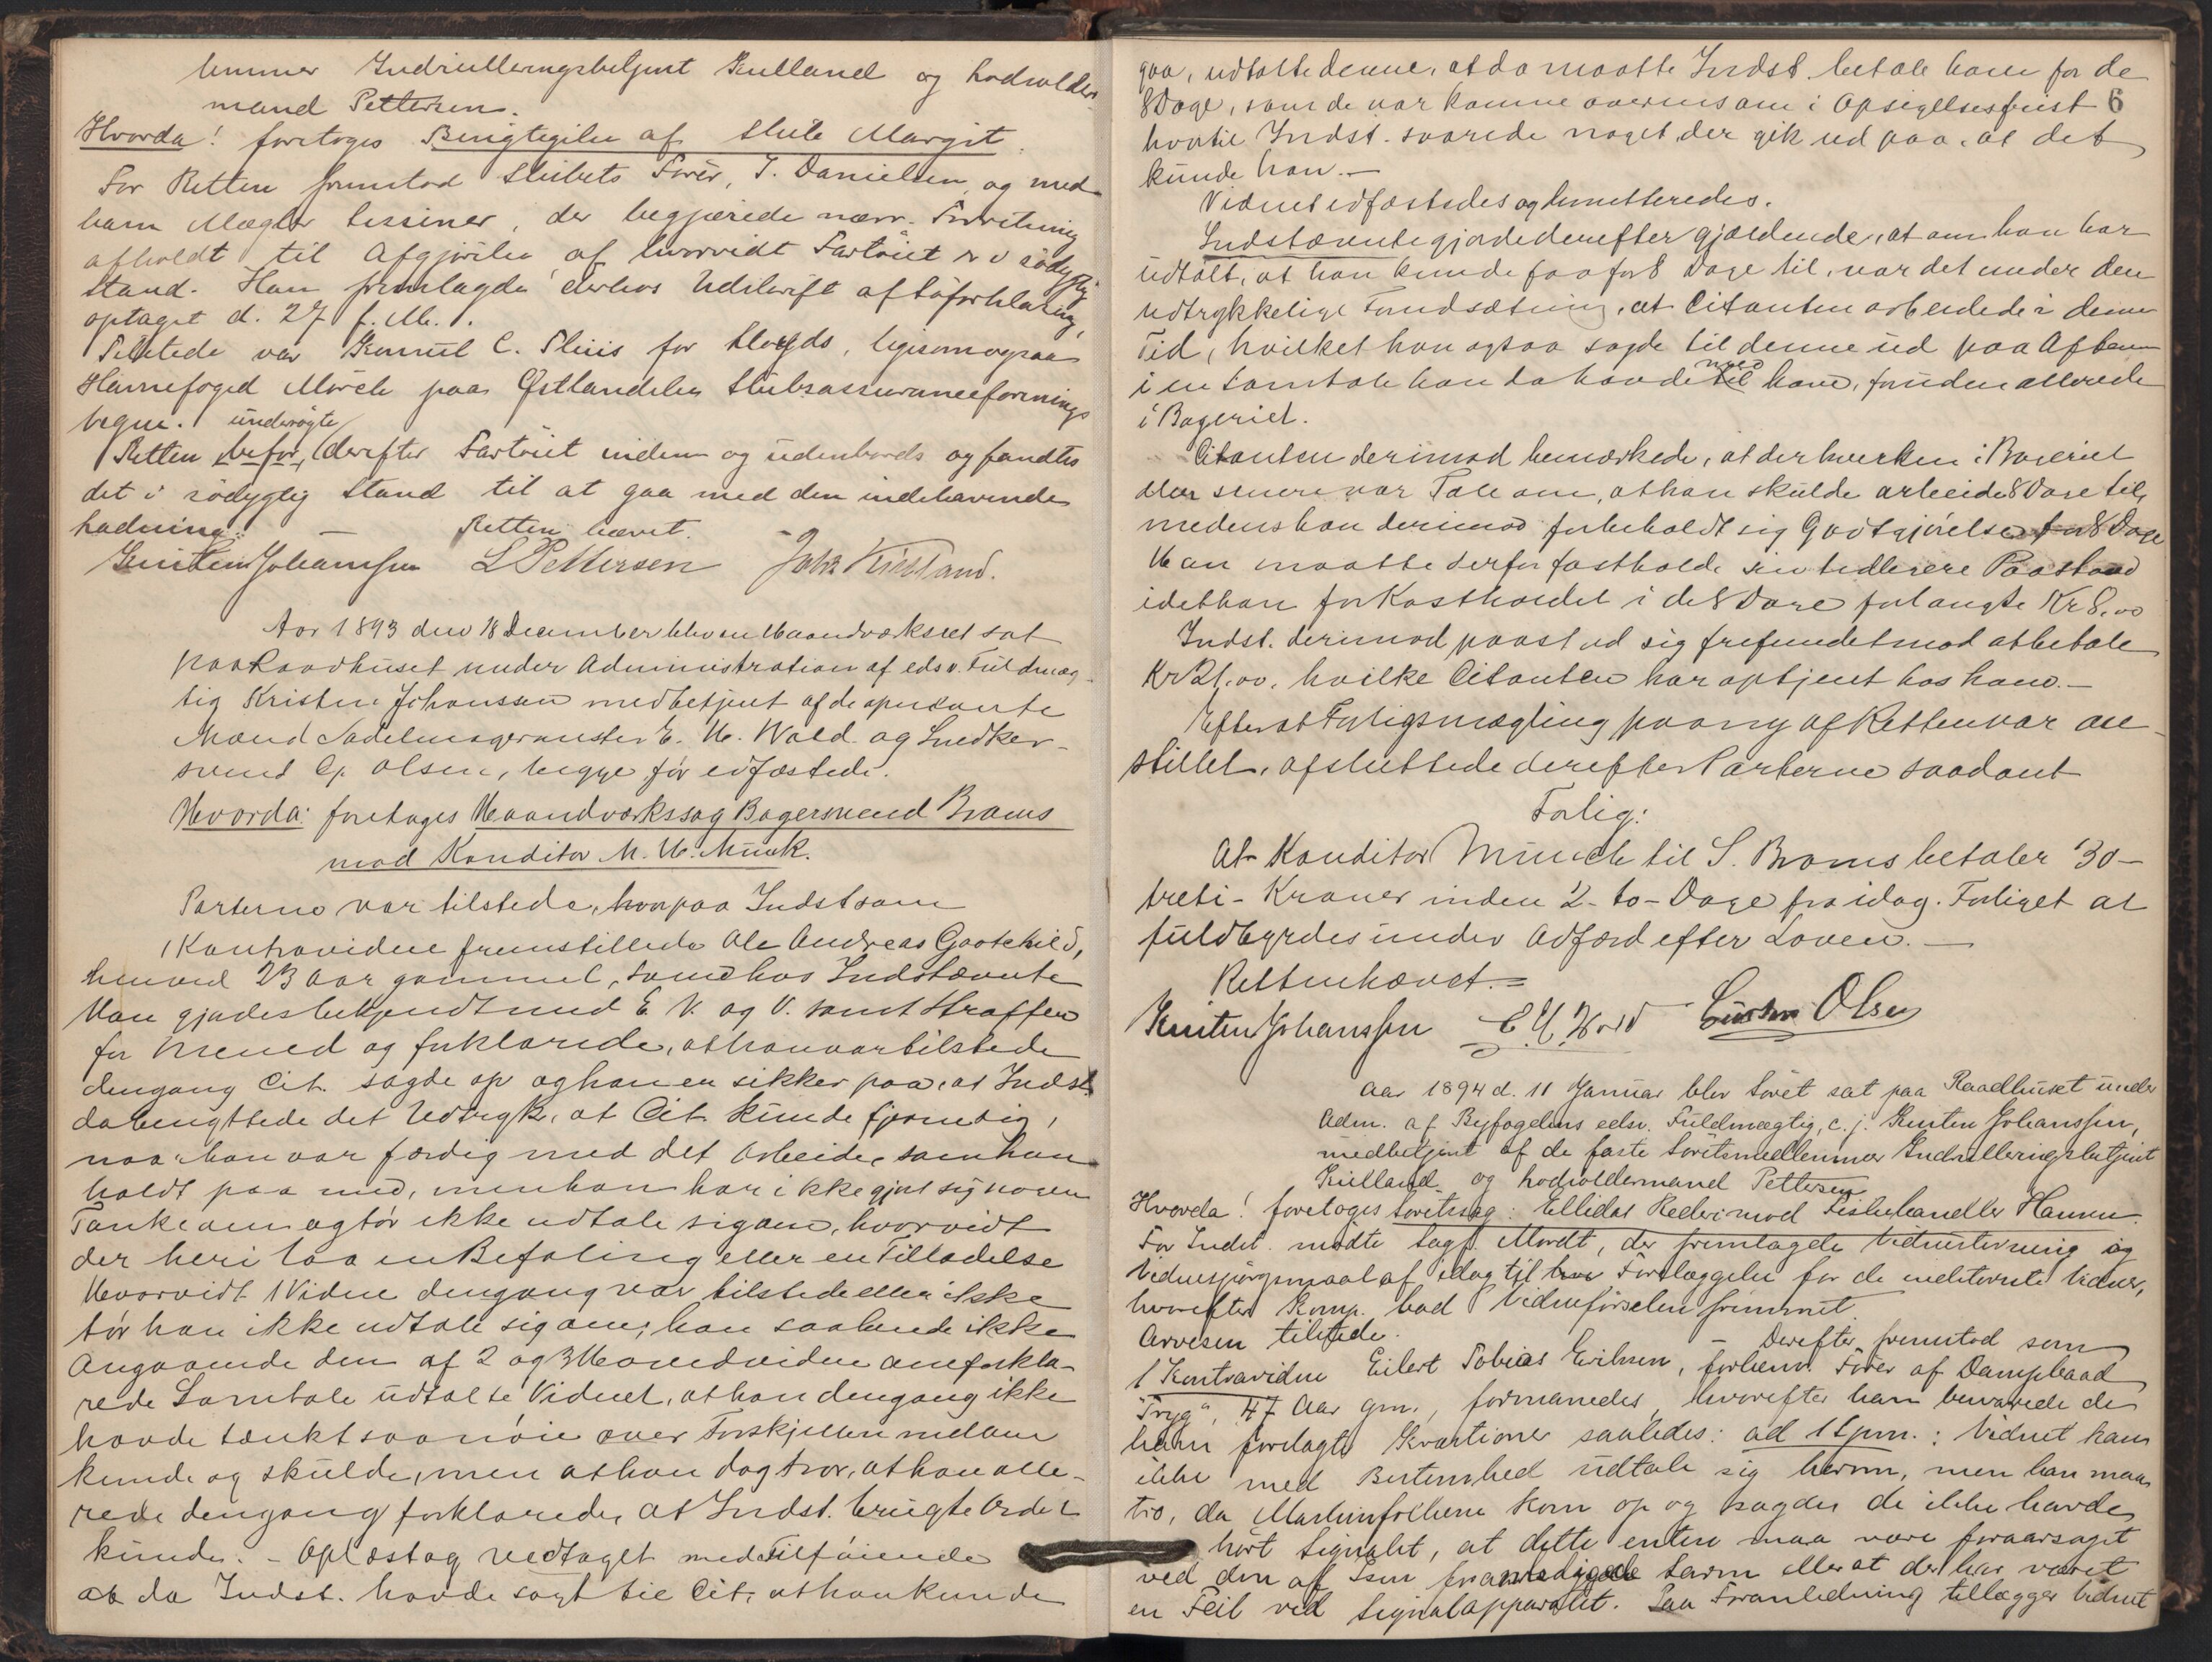 lemmer Indrulleringsbetjent Kielland og hodsolder-
mand Pettersen.
Hvorda! foretoges Besigtigelse af Skute Margit.
For Retten fremstod Skibets Fører, T. Danielsen, og med
ham Mægler Cessiner, der begjærede nærv. Forretning
afholdt til Afgjørelse af hvorvidt Fartøiet er i sødygtig
Stand. Han fremlagde derhos Udskrift af Søforklaring,
optaget d. 27 f. M.
Tilstede var Konsul C. Sluis for Lloyds, ligesom ogsaa
Havnefoged Mørch paa Østlandske Skibsassuranceforenings
vegne.
Retten befor undersøgte derefter Fartøiet inden og udenbords og fandtes
det i sødygtig Stand til at gaa med den indehavende
Ladning. — Retten hævet.
Kristen Johanssen L Pettersen Joh. Kielland.
Aar 1893 den 18 December blev en Haandværksret sat
paa Raadhuset under Administration af edsv. Fuldmæg-
tig Kristen Johanssen medbetjent af de opnævnte
Mænd Sadelmagermester E. H. Wold og Snedker-
svend G. Olsen, begge før edfæstede.
Hvorda: foretoges Haandværkssag Bagersvend Broms
mod Konditor M. H. Münch.
Parterne var tilstede, hvorpaa Indst som
1 Kontravidne fremstillede Ole Andreas Gaatehild,
henved 23 Aar gammel, Svend hos Indstævnte
Han gjordes bekjendt med E. V. og V. samt Straffen
for Mened og forklarede, at han var tilstede
dengang Cit. sagde op og han er sikker paa, at Indst.
da benyttede det Udtryk, at Cit. kunde fjerne sig,
naar han var færdig med det Arbeide, som han
holdt paa med, men han har ikke gjort sig nogen
Tanke om og tør ikke udtale sig om, hvorvidt
der heri laa en Befaling eller en Tilladelse
Hvorvidt 1 Vidne dengang var tilstede eller ikke
tør han ikke udtale sig om; han saa hende ikke
Angaaende den af 2 og 3 Hovedvidne omforkla-
rede Samtale udtalte Vidnet, at han dengang ikke
havde tænkt saa nøie over Forskjellen mellem
kunde og skulde, men at han dog tror, at han alle-
rede dengang forklarede, at Indst. brugte Ordet
kunde. – Oplæst og vedtaget med Tilføiende
at da Indst. havde sagt til Cit. at han kunde
gaa, udtalte denne, at da maatte Indst. betale ham for de
8 Dage, som de var komne overens om i Opsigelsesfrist 6
hvortil Indst. svarede noget der gik ud paa, at det
kunde han.—
Vidnet edfæstedes og demitteredes.
Indstævnte gjorde derefter gjældende, at om han har
udtalt, at han kunde faa for 8 Dage til, var det under den
udtrykkelige Forudsætning, at Citanten arbeidede i denne
Tid, hvilket han ogsaa sagde til denne ud paa Aftenen
i en Samtale han da havde til med ham, foruden allerede
i Bageriet.
Citanten derimod bemærkede, at der hverken i Bageriet
eller senere var Tale om, at han skulde arbeide 8 Dage til,
medens han derimod forbeholdt sig Godtgjørelse for 8 Dage
Han maatte derfor fastholde sin tidligere Paastand
idet han for Kostholdet i de 8 Dage forlangte Kr 8,00
Indst. derimod paastod sig frifundet mod at betale
Kr 21,00, hvilke Citanten har optjent hos ham.—
Efterat Forligsmægling paany af Retten var an-
stillet, afsluttede derefter Parterne saadant
Forlig:
At Konditor Münch til S. Broms betaler 30—
treti- Kroner inden 2- to- Dage fra idag. Forliget at
fuldbyrdes under Adfærd efter Loven.—
Retten hævet.=
Kristen Johanssen E. H. Wold Gustav Olsen
Aar 1894 d. 11 Januar blev Søret sat paa Raadhuset under
Adm. af Byfogdens edsv. Fuldmægtig, c. j. Kristen Johanssen,
medbetjent af de faste Søretsmedlemmer Indrulleringsbetjent
Kielland og hodsoldermand Pettersen
Hvorda! foretoges Søretssag: Ellidas Rederi mod Fiskehandler Hansen.
For Indst. mødte Sagf. Mordt, der fremlagde Vidnestevning og
Vidnespørgsmaal af idag til Forelæggelse for de indstevnte Vidner,
hvorefter Komp. bad Vidneførselen fremmet.
Arvesen tilstede. — Derefter fremstod som
1 Kontravidne Eilert Tobias Eriksen, forhenv. Fører af Dampbaad
"Tryg", 47 Aar gm., formanedes, hvorefter han besvarede de
ham forelagte Kvæstioner saaledes: ad 1 Spm.: Vidnet kan
ikke med Bestemthed udtale sig herom, men han maa
tro, da Maskinfolkene kom op og sagde, de ikke havde
hørt Signalet, at dette enten maa være foraarsaget
ved den af Isen foranledigede Larm eller at der har været
en Feil ved Signalapparatet. Paa Foranledning tillægger Vidnet